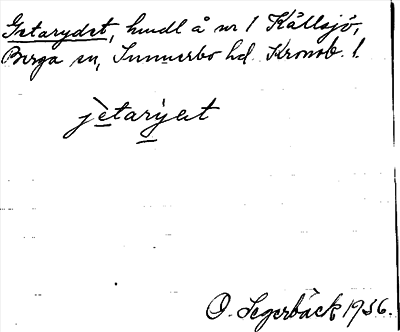 Getarydet, hmdl å nr 1 Källsjö,
Berga sn, Sunnerbo hd. Kronob. l.
jètarỳet
O. Segerbäck 1936.